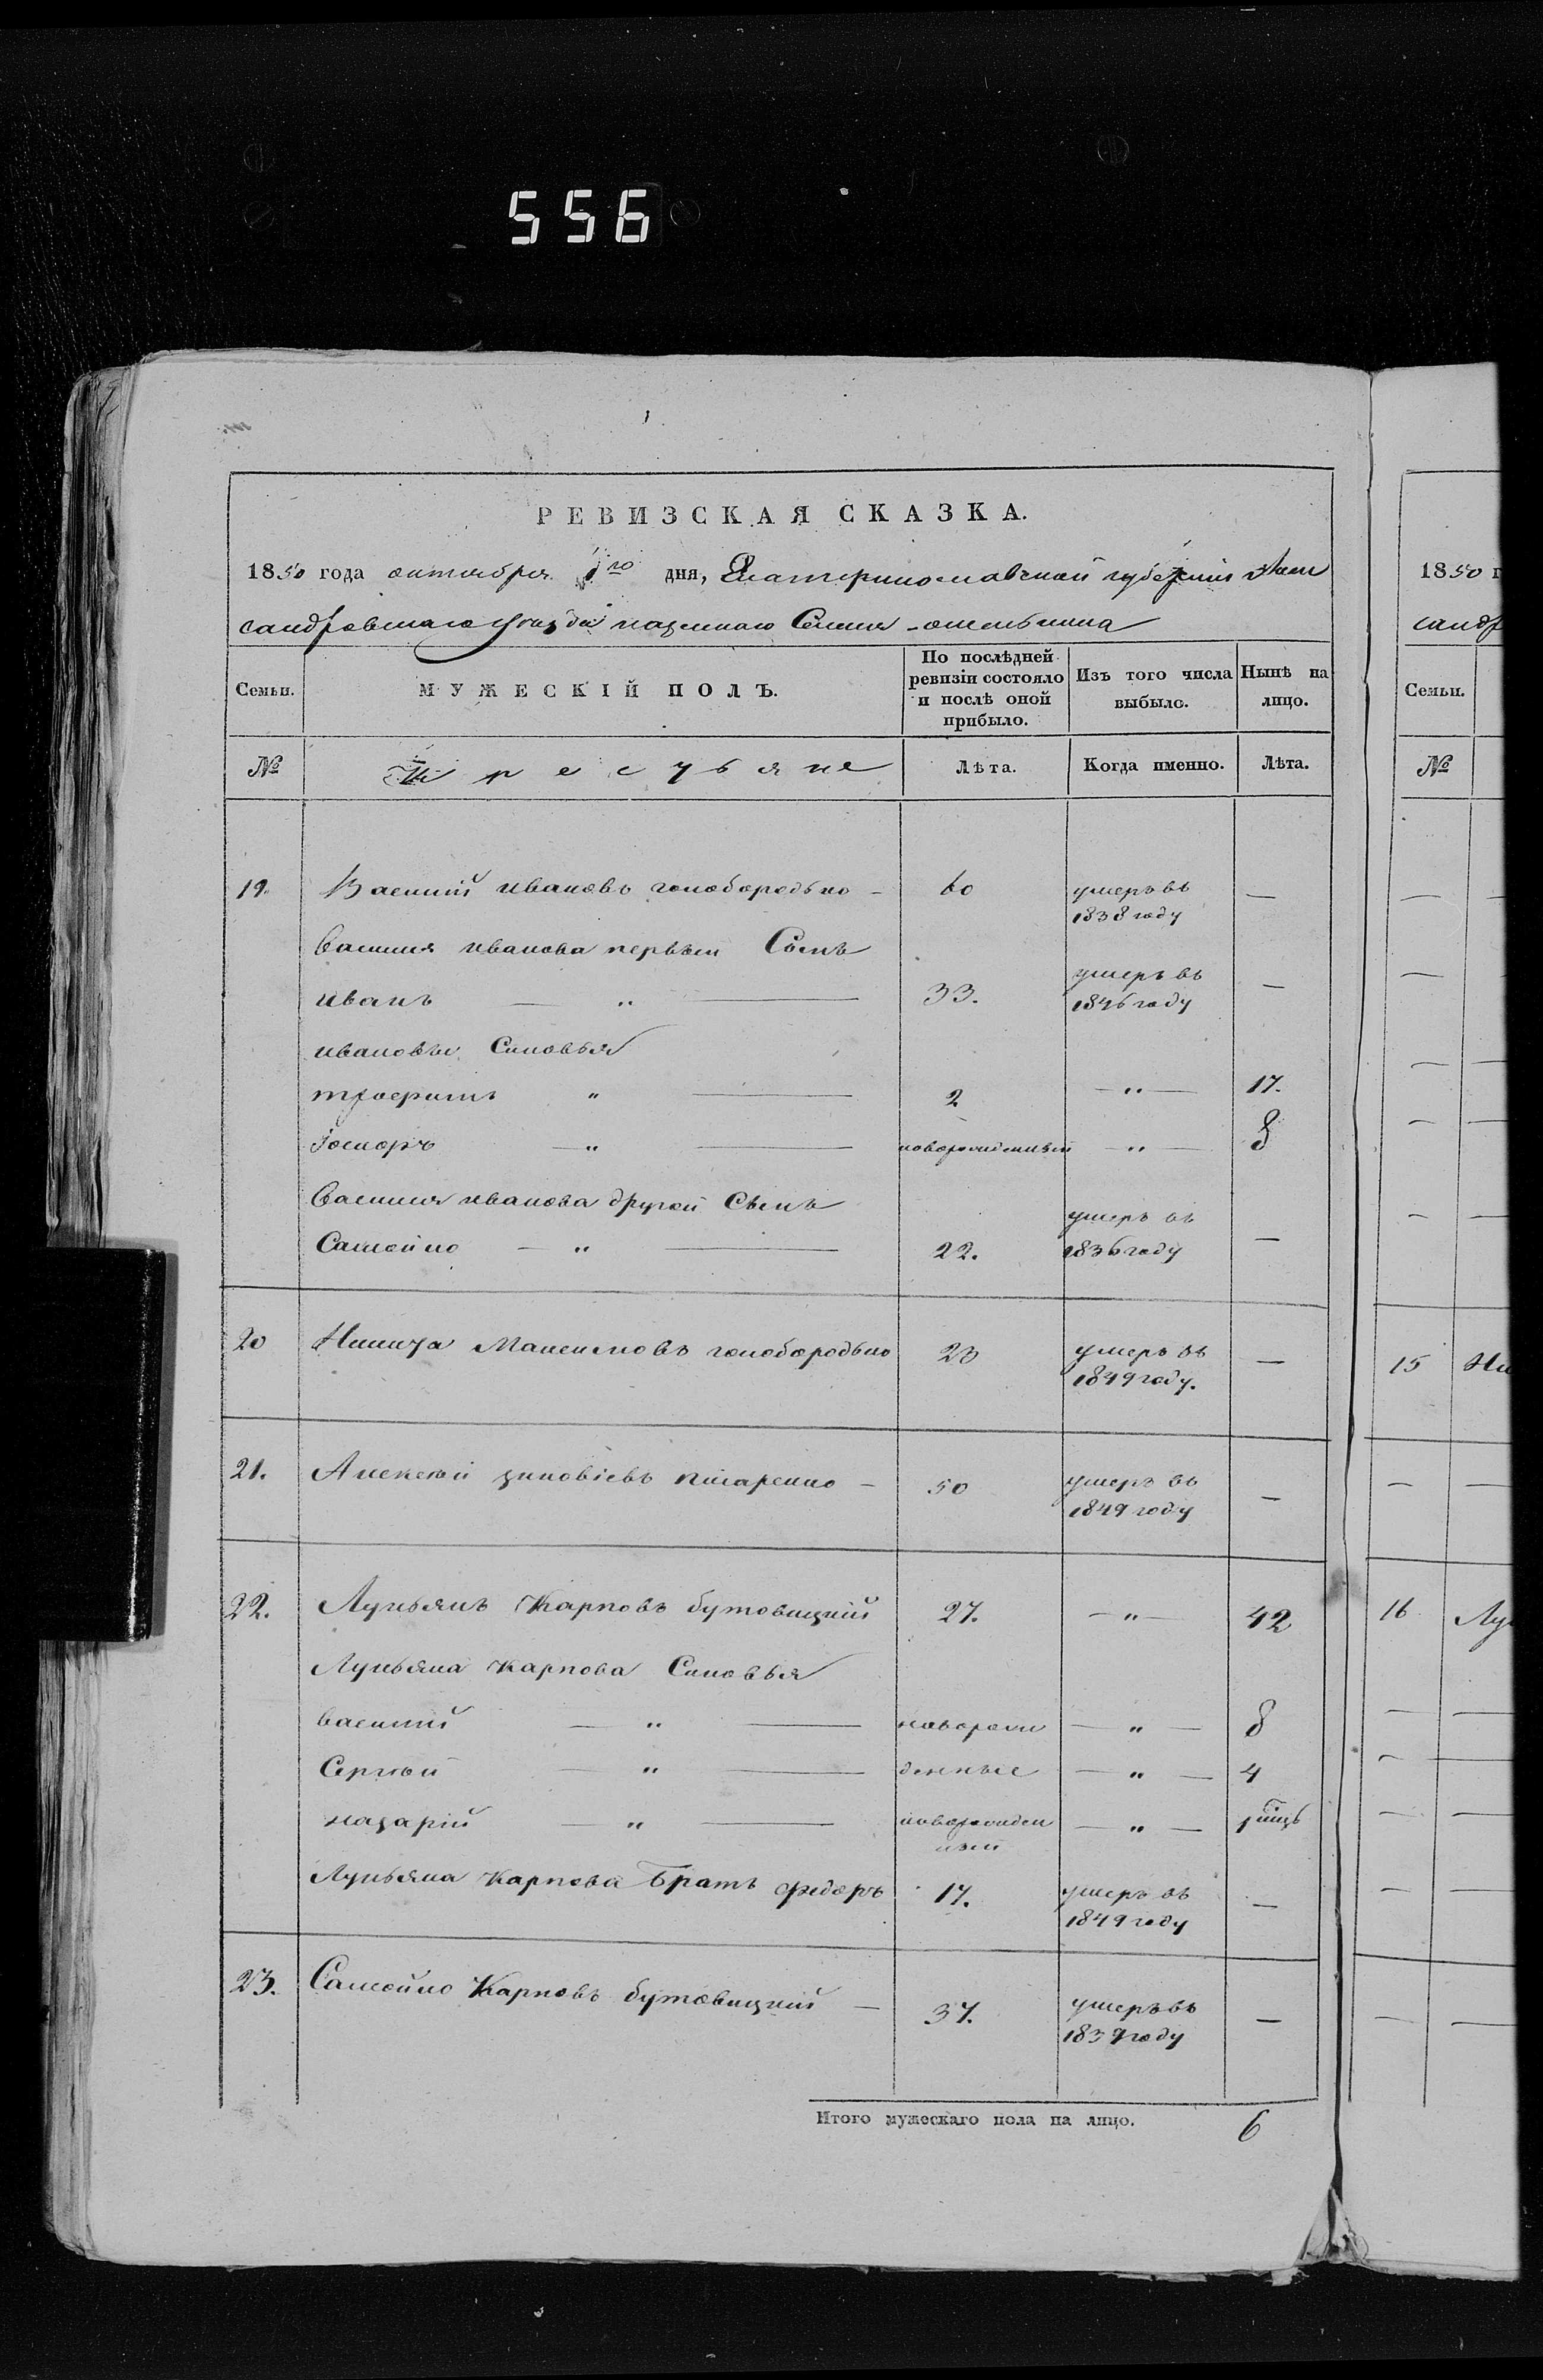 556
РЕВИЗСКАЯ СКАЗКА.
1850 года октября 1го дня, Екатеринославской губерніи Алек
сандровскаго уѣзда казеннаго Селенія
Семьи. МУЖЕСКІЙ ПОЛЪ. По послѣдней ревизіи состояло и послѣ оной прибыло. Изъ того числа выбыло. Нынѣ на лицо.
№ Крестьяне Лѣта. Когда именно. Лѣта.
19. Василий ивановъ голобородько - 60 умеръ въ 1838 году —
василия иванова первый Сынъ
иванъ — „ — 33. умеръ въ 1846 году —
ивановы Синовья
„ — 2 — „ — 17.
— „ — новорожденный — „ — 8
василия иванова другой Сынъ
Самойло — „ — 22. умеръ въ 1836 году —
20 Никита Максимовъ голобородько 20 умеръ въ 1849 году. —
21. Алексѣй зиновіевъ писаренко - 50 умеръ въ 1849 году —
22. Лукьянъ Карповъ бутовицкій 27. — „ — 42
Лукьяна карпова Синовья
василий — „ —новорож — „ — 8
Сергѣй — „ — денные — „ — 4
назарій „ — новорожден ный — „ —
Лукьяна карпова Братъ федоръ 17. умеръ въ 1849 году —
23. Самойло Карповъ бутовицкій — 37. умеръ въ 1839 году —
Итого мужескаго пола на лицо. 6
1850 г
сандр
Семьи.
№
15 Ни
16 Лу